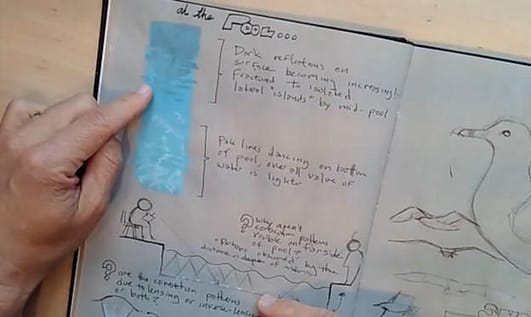 at the POOL...
Dark reflections on
surface becoming increasingly
fractured to isolated
lateral "islands" by mid-pool
Pale lines dancing on bottom
of pool, over all value of
water is lighter
? why aren't
patterns
visible on farside
of pool?
"Pattern obscured" by the
distance
? are the convection patterns
due to lensing or inverse-lensing
or both?